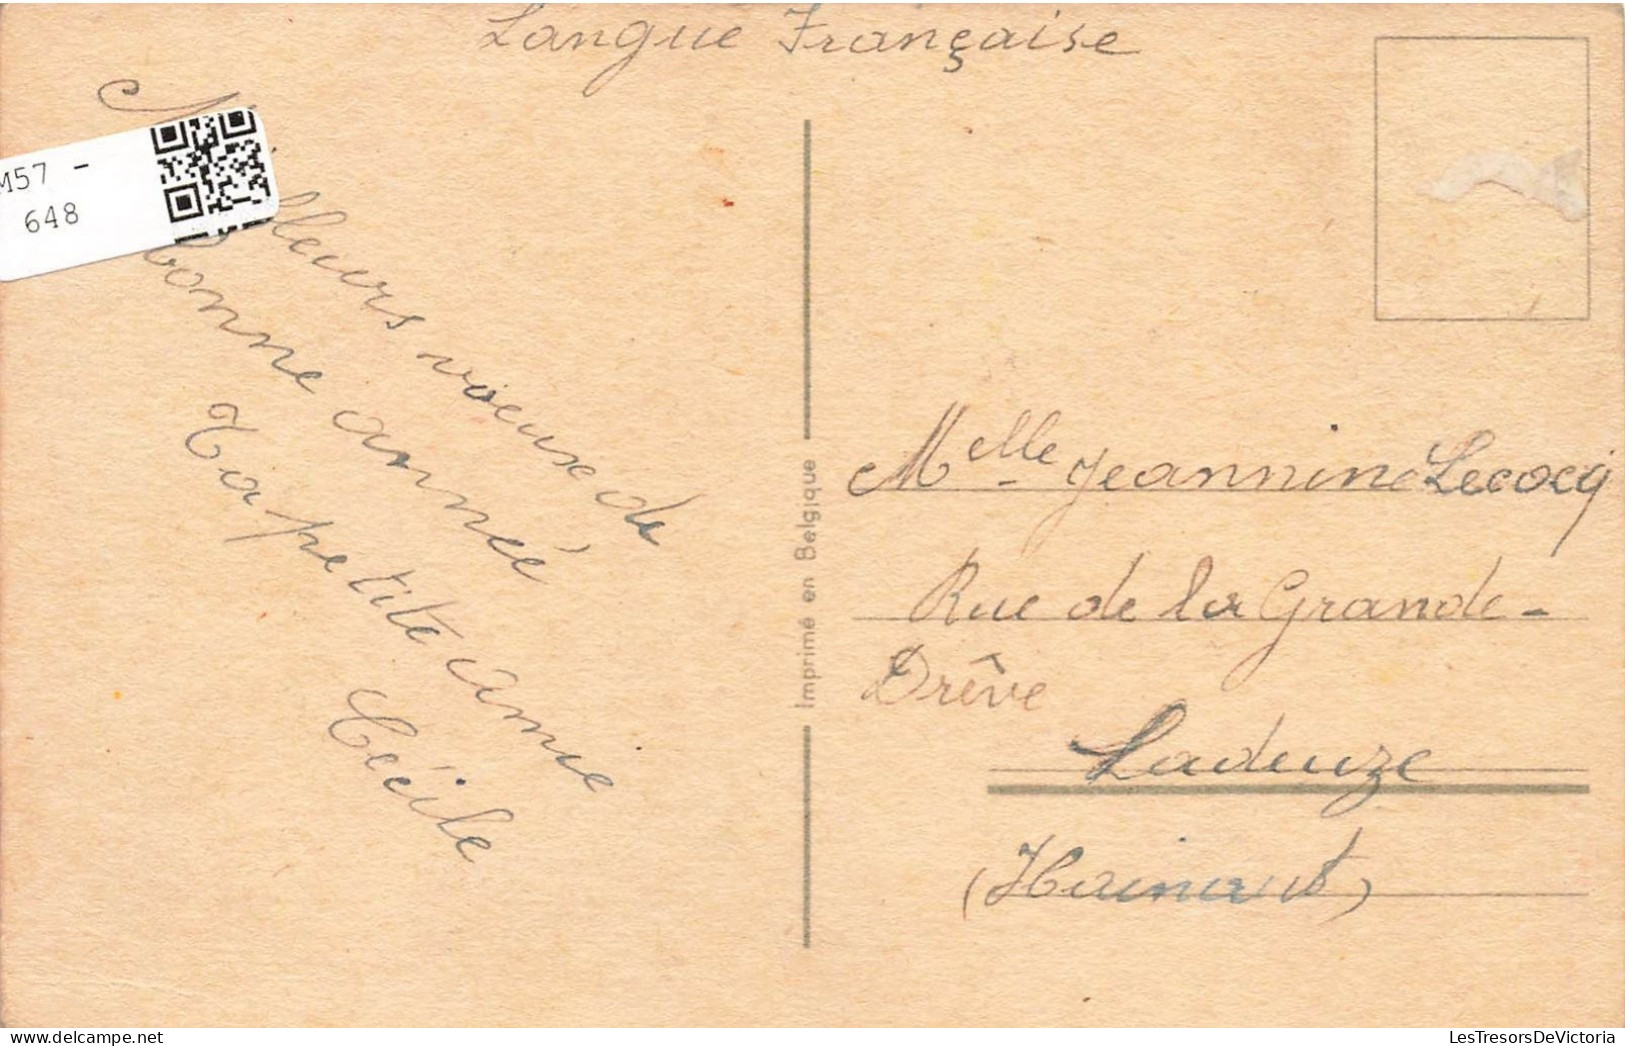 Langue Française
M57 -
648
Meilleurs voeuse de
bonne année
Ta petite amie
Cécile
Imprimé en Belgique
Melle Jeannine Lecocq
Rue de la Grande-
Drêve
Ladeuze
(Hainaut)
LesTresorsDeVictoria